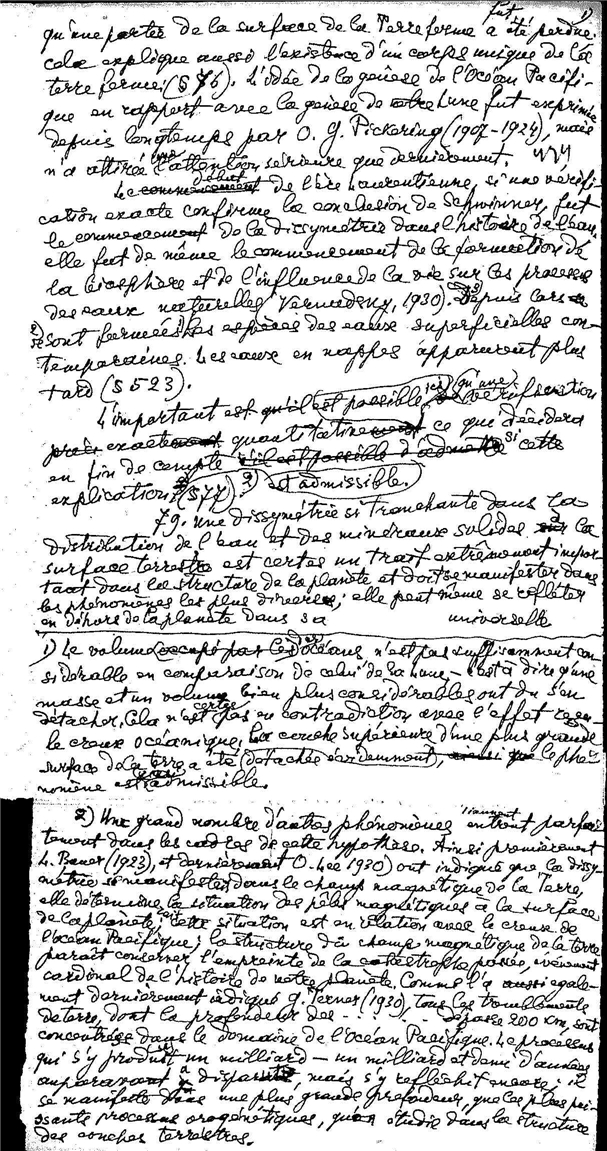 fut 1)
qu'une partie de la surface de la Terre ferme a été perdue.
cela explique aussi l'existence d'un corps unique de la
terre ferme (§ 76). L'idée de la genèse de l'Océan Pacifi-
que en rapport avec la genèse de notre Lune fut exprimée
depuis longtemps par O. G. Pickering (1907-1924), mais
n'a attiré l'attention sérieuse que dernièrement.
début
Le commencement de l'ère Laurentienne, si une vérifi-
cation exacte confirme la conclusion de Schwinner, fut
le commencement de la dissymétrie dans l'histoire de l'eau.
elle fut de même le commencement de la formation de
la biosphère et de l'influence de la vie sur les processus
des eaux naturelles (Vernadsky, 1930). Depuis lors
se sont formées les espèces des eaux superficielles con-
temporaines. Les eaux en nappes apparurent plus
tard (§ 523).
L'important est qu'il est possible (qu'une) vérification
quantitative ce que décidera
en fin de compte il est possible d'admettre si cette
explication (§ 77) 2) est admissible.
79. une dissymétrie si tranchante dans la
distribution de l'eau et des minéraux solides à la
surface terrestre est certes un trait extrêmement impor
tant dans la structure de la planète et doit se manifester dans
les phénomènes les plus divers; elle peut même se refléter
en dehors de la planète dans sa universelle
1) Le volume occupé par les océans n'est pas suffisamment con-
sidérable en comparaison de celui de la Lune - c'est à dire qu'une
masse et un volume bien plus considérables ont dû s'en
détacher. Cela n'est certes pas en contradiction avec l'effet
le creux océanique. La couche supérieure d'une plus grande
surface de la terre a été (détachée évidemment), ainsi que le phé-
nomène est admissible.
2) Une grand nombre d'autres phénomènes viennent entrent parfai-
tement dans les cadres de cette hypothèse. Ainsi premièrement
L. Bauer (1923), et dernièrement O. Lee 1930) ont indiqué que la dissy-
métrie se manifeste dans le champ magnétique de la Terre,
elle détermine la situation des pôles magnétiques à la surface
de la planète; cette situation est en relation avec le creux de
l'océan Pacifique; la structure du champ magnétique de la terre
paraît conserver l'empreinte de la catastrophe passée, événement
cardinal de l'histoire de notre planète. Comme l'a aussi égale-
ment dernièrement indiqué G. Terner (1930), tous les tremblements
de terre, dont la profondeur des - - . . . dépasse 200 km, sont
concentrés dans le domaine de l'Océan Pacifique. Le processus
qui s'y produisit un milliard - un milliard et demi d'années
auparavant a disparu, mais s'y réfléchit encore; il
se manifeste dans une plus grande profondeur, que les plus puis-
sants processus orogénétiques, qu'on étudie dans la structure
des couches terrestres.